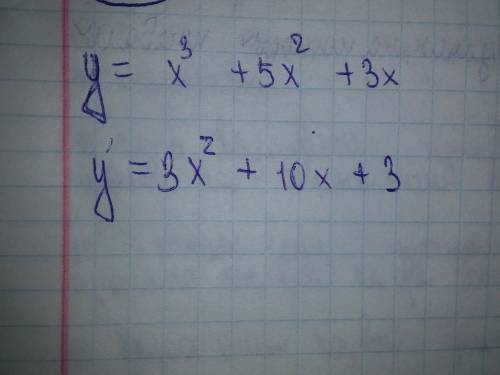 y = x³ + 5x² + 3x
y' = 3x² + 10x + 3